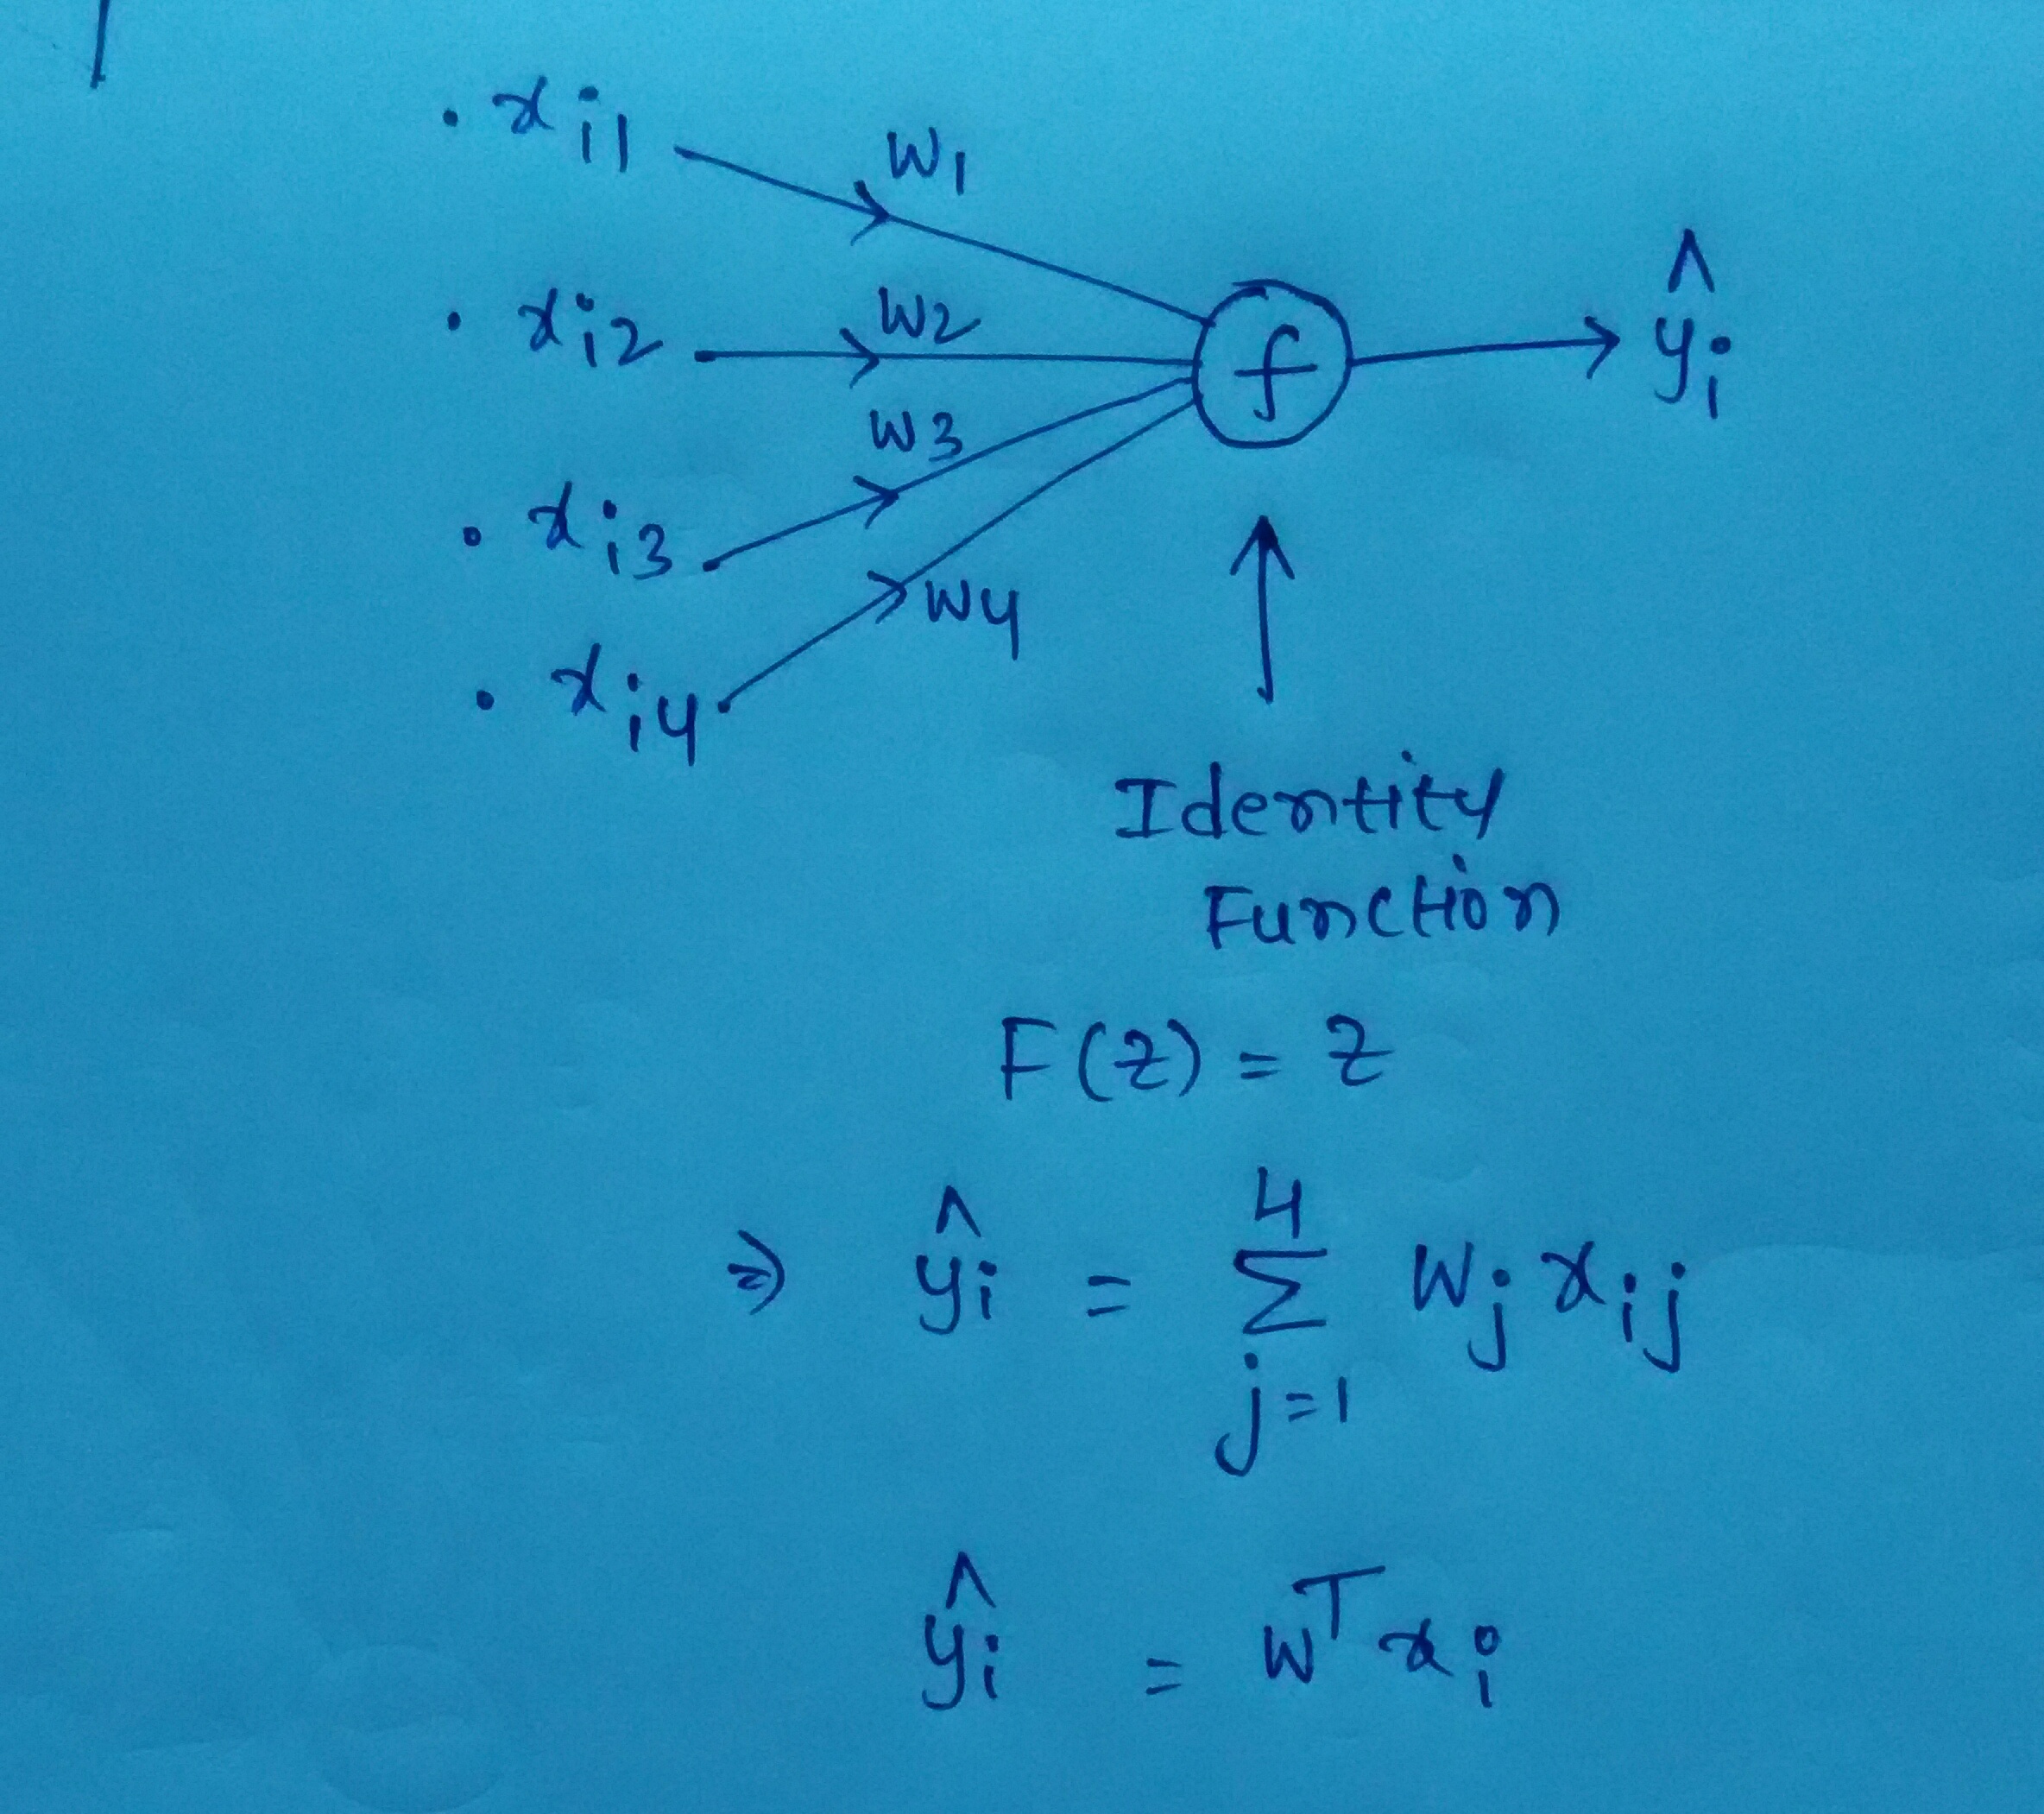 . x_i1
w1
. x_i2
w2
f
ŷ_i
w3
. x_i3
w4
. x_i4
Identity
Function
F(z) = z
⇒ ŷ_i = Σ_{j=1}^{4} w_j x_ij
ŷ_i = w^T x_i